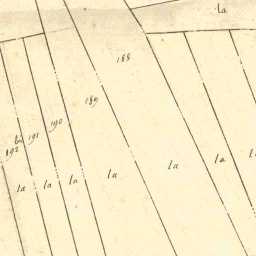 la
188
189
190
191
192
la
la
la
la
la
la